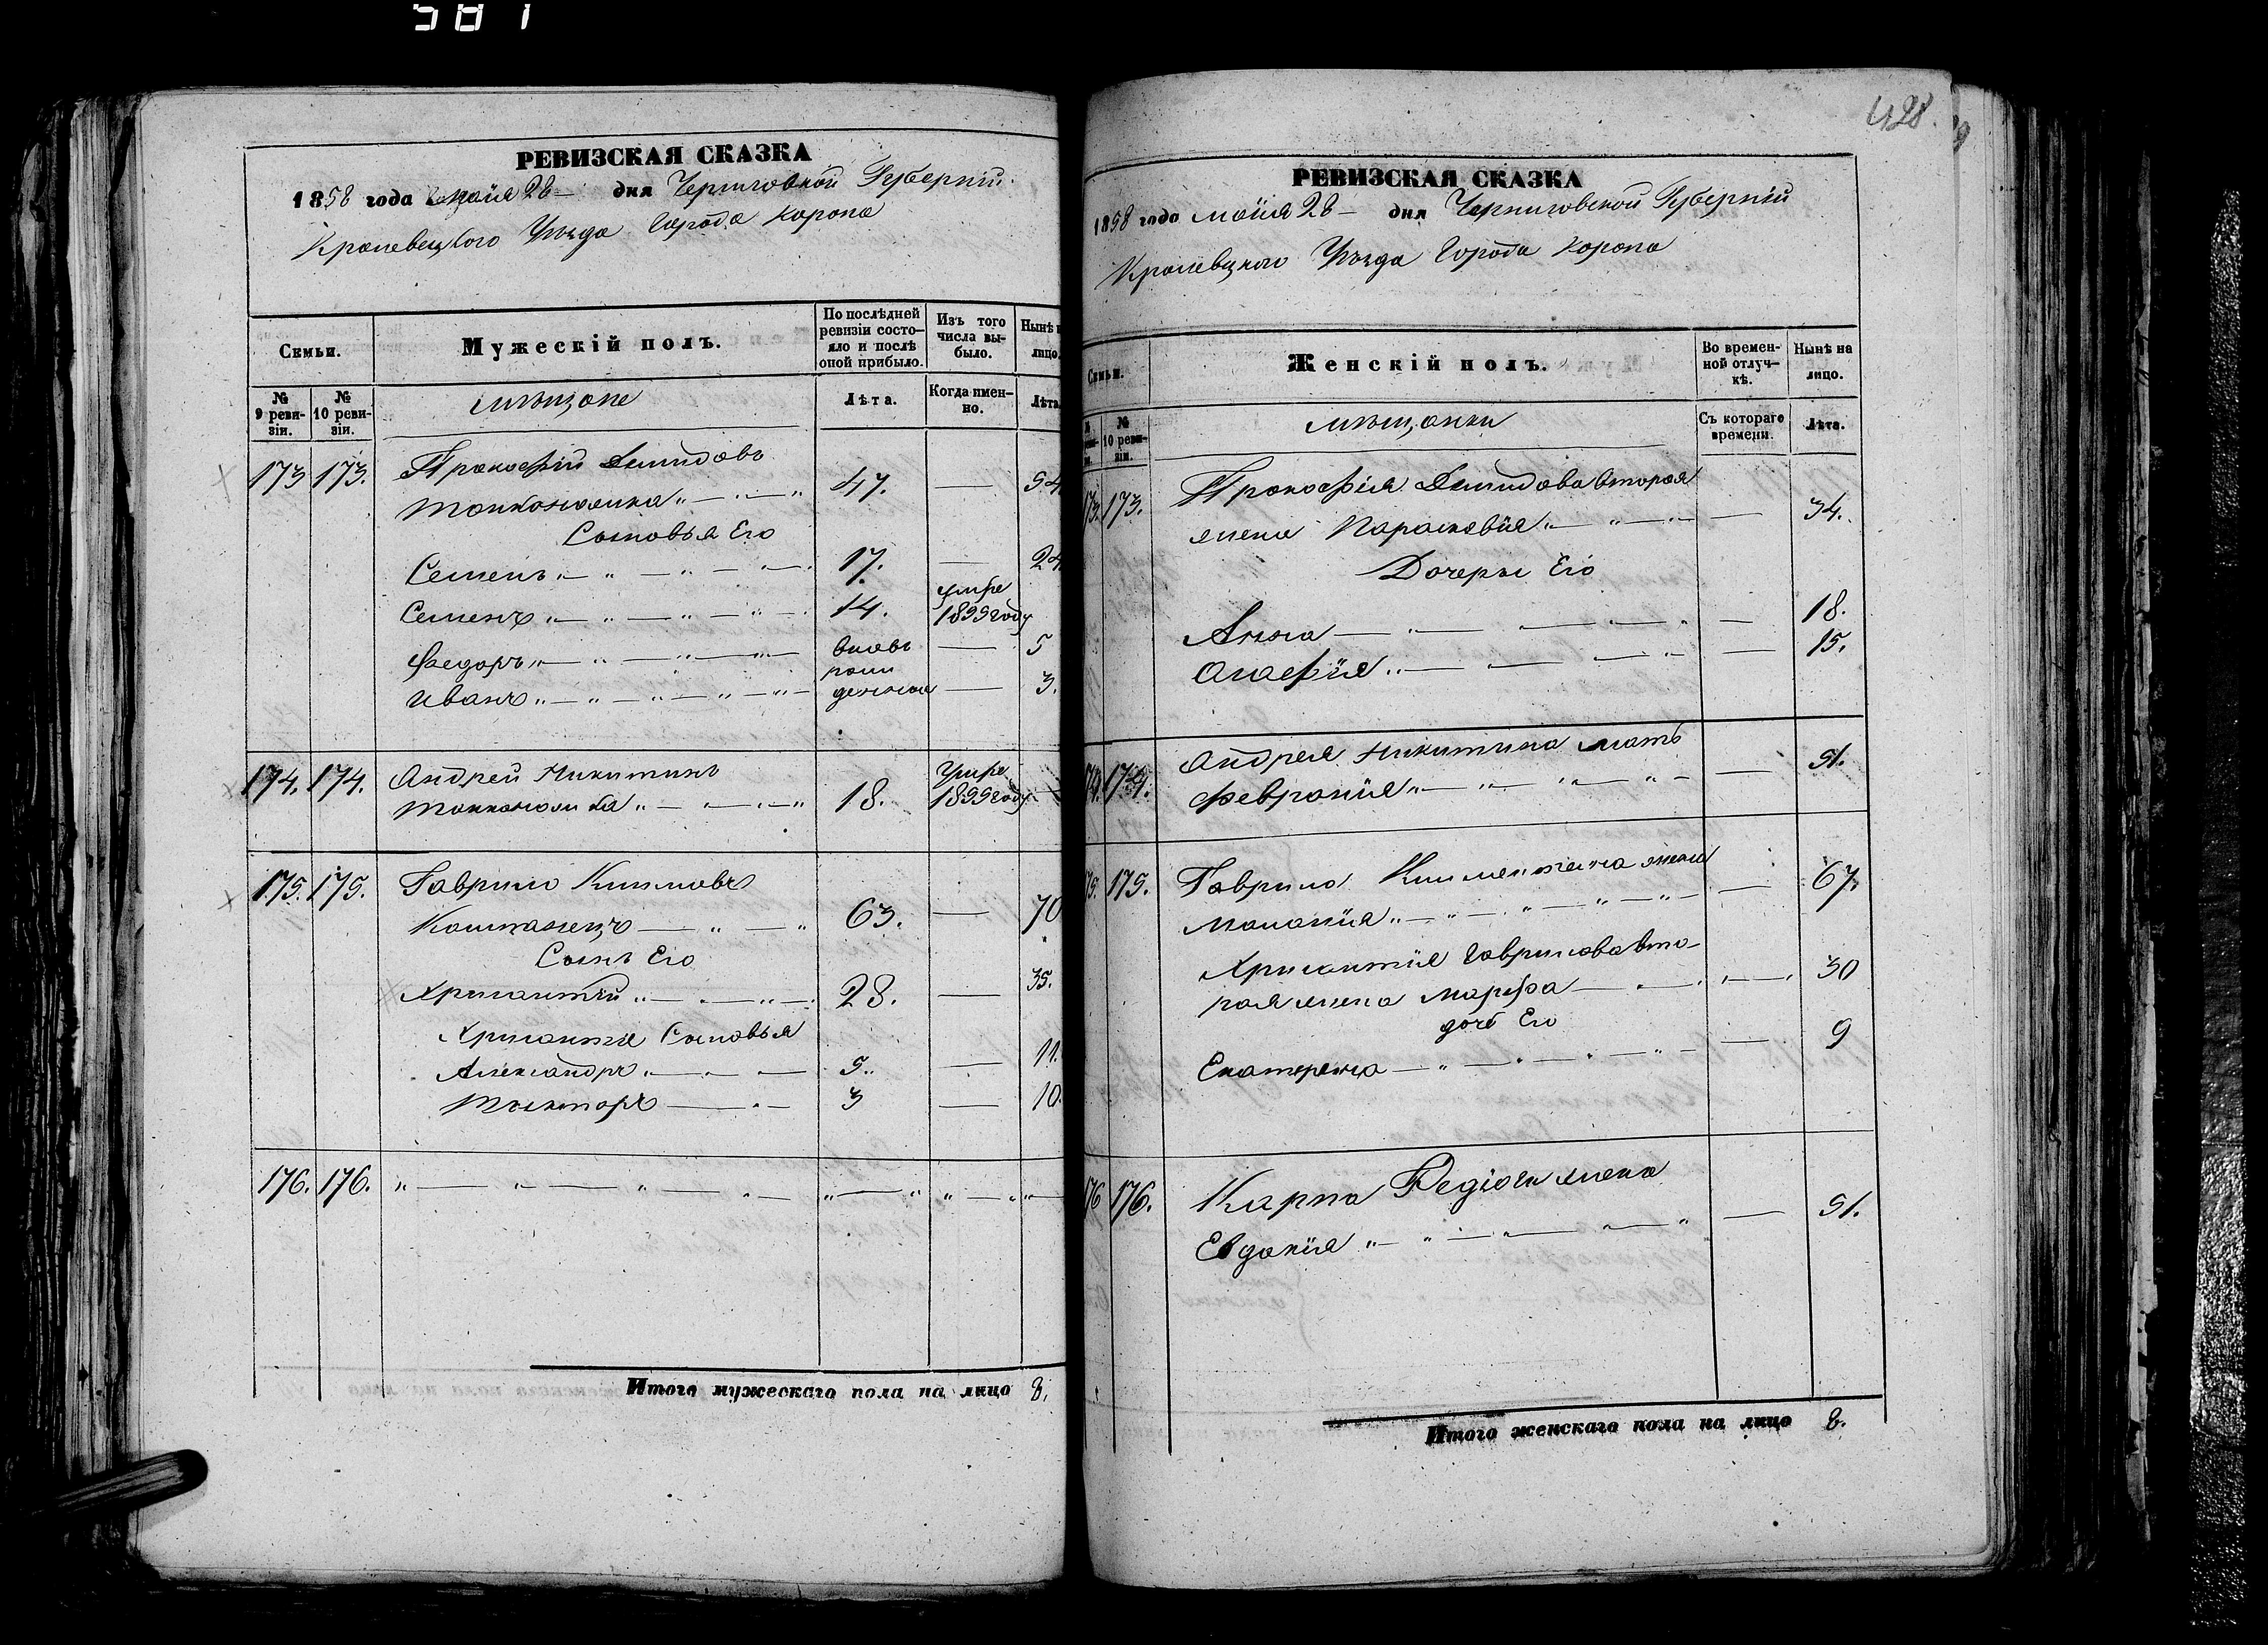 581
РЕВИЗСКАЯ СКАЗКА
1858 года маія 28 дня Черниговской Губерніи
Кролевецкого Уѣзда Города Коропа
Семьи.
Мужескій полъ.
По послѣдней ревизіи состояло и послѣ оной прибыло.
Изъ того числа выбыло.
Нынѣ на лицо.
№ 9 ревизіи.
№ 10 ревизіи.
мѣщане
Лѣта.
Когда именно.
Лѣта
173 173. Прокофій Демидовъ
47. — 54
Сыновья Его
Семенъ 17. — 24
Семенъ 14. умре 1855 году
Федоръ вновь — 5
Иванъ рожденные — 3.
174. 174. Андрей Никитинъ
18. Умре 1855 году
175. 175. Гаврило Климовъ
63. — 70
Сынъ Его
Хрисантій 28. — 35.
Хрисантія Сыновья
Александръ 5. — 11.
3 — 10.
176. 176.
Итого мужескаго пола на лицо 8.
428.
РЕВИЗСКАЯ СКАЗКА
1858 года маія 28 дня Черниговской Губерніи
Кролевецкого Уѣзда Города Коропа
Семьи.
Женскій полъ.
Во временной отлучкѣ.
Нынѣ на лицо.
№ 10 ревизіи.
мѣщанки
Съ котораго времени.
Лѣта.
173. 173. Прокофія Демидова вторая
жена Парасковія — 34.
Дочеры Его
Анна — 18.
Агафія — 15.
174. 174. Андрея Никитина мать
Февронія — 51.
175. 175. Гаврила жена
Маланія — 67.
Хрисантія Гаврилова вто-
рая жена Марфа — 30
дочь Его
Екатерина — 9
176 176. Карпа жена
Евдокія — 51.
Итого женскаго пола на лицо 8.